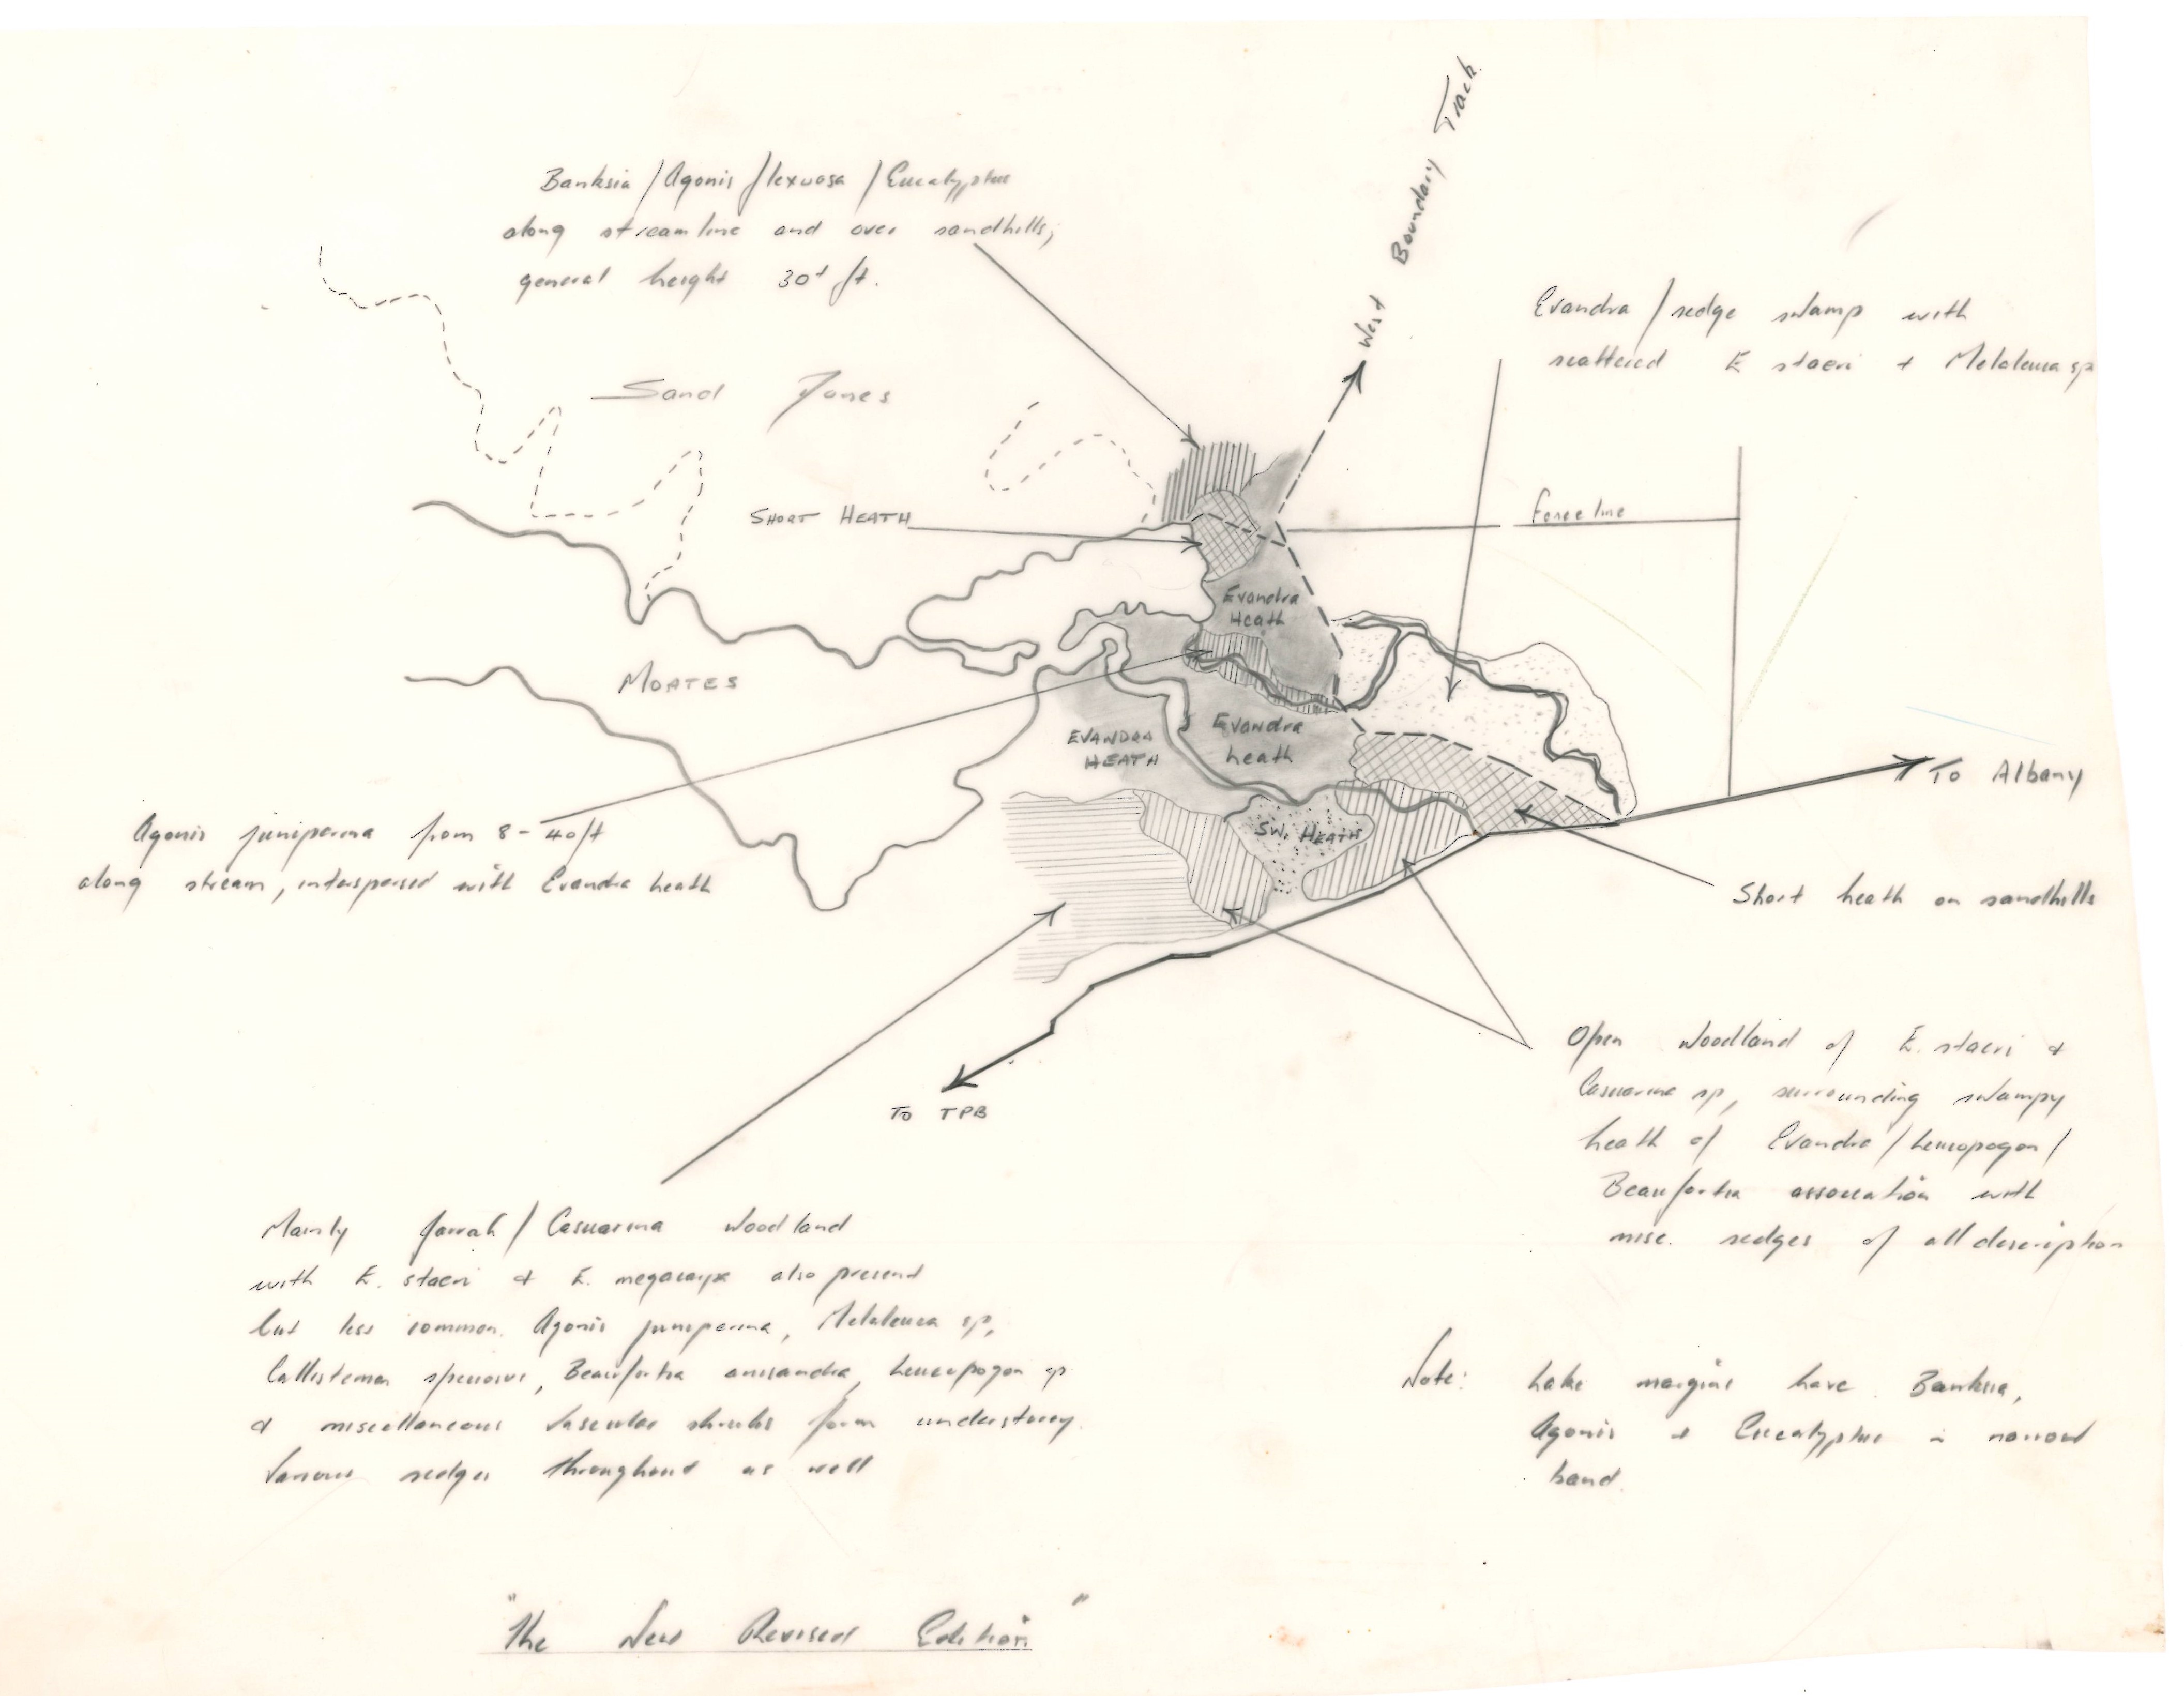 West Boundary Track
Banksia / Agonis flexuosa / Eucalyptus
along streamline and over sandhills,
general height 30+ ft.
Evandra / sedge swamp with
scattered E staeri + Melaleuca sp
Sand Zones
SHORT HEATH
Fence line
Evandra
Heath
MOATES
EVANDRA
HEATH
Evandra
heath
To Albany
SW. HEATH
Agonis juniperina from 8 - 40 ft
along stream, interspersed with Evandra heath
Short heath on sandhills
Open woodland of E. staeri &
Casuarina sp, surrounding swampy
heath of Evandra / Leucopogon /
Beaufortia association with
misc. sedges of all description
To TPB
Mainly Jarrah / Casuarina woodland
with E. staeri & E. megacarpa also present
but less common. Agonis juniperina, Melaleuca sp,
Callistemon speciosus, Beaufortia anisandra, Leucopogon sp
& miscellaneous vascular shrubs form understorey.
Various sedges throughout as well
Note: Lake margins have Banksia,
Agonis + Eucalyptus in narrow
band.
"The New Revised Edition"